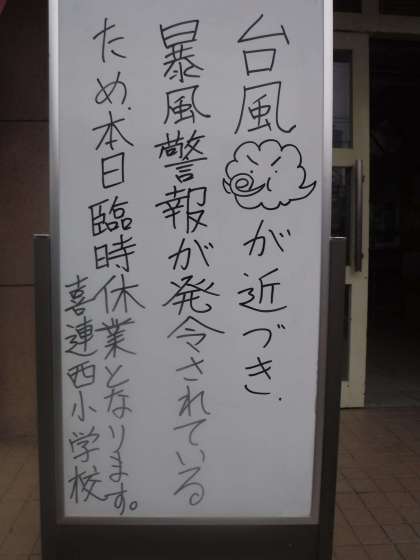 台風が近づき.
暴風警報が発令されている
ため.本日臨時休業となります。
喜連西小学校